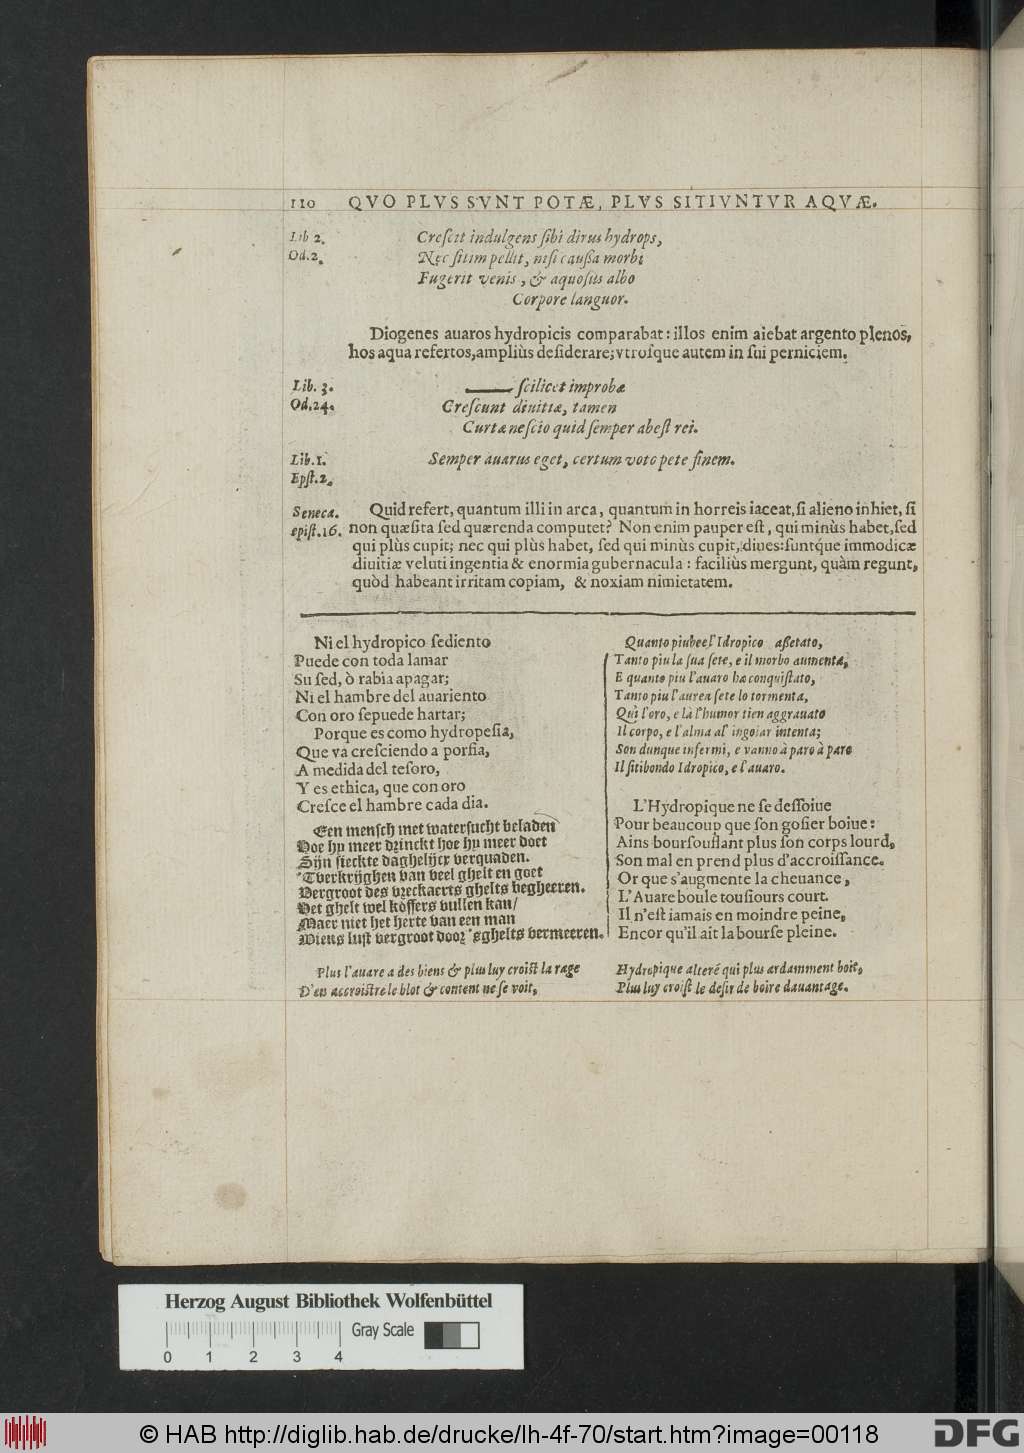 110 QVO PLVS SVNT POTÆ, PLVS SITIVNTVR AQVÆ.
Lib 2. Creſcit indulgens ſibi dirus hydrops,
Od. 2. Nec ſitim pellit, niſi cauſſa morbi
Fugerit venis, & aquoſus albo
Corpore languor.
Diogenes auaros hydropicis comparabat: illos enim aiebat argento plenos,
hos aqua refertos, ampliùs deſiderare; vtroſque autem in ſui perniciem.
Lib. 3. ſcilicet improbæ
Od. 24. Creſcunt diuitiæ, tamen
Curtæ neſcio quid ſemper abeſt rei.
Lib. 1. Semper auarus eget, certum voto pete finem.
Epſt. 2.
Seneca. Quid refert, quantum illi in arca, quantum in horreis iaceat, ſi alieno inhiet, ſi
epiſt. 16. non quæſita ſed quærenda computet? Non enim pauper eſt, qui minùs habet, ſed
qui plùs cupit; nec qui plùs habet, ſed qui minùs cupit, diues: ſuntq́ue immodicæ
diuitiæ veluti ingentia & enormia gubernacula: faciliùs mergunt, quàm regunt,
quòd habeant irritam copiam, & noxiam nimietatem.
Ni el hydropico ſediento
Puede con toda lamar
Su ſed, ò rabia apagar;
Ni el hambre del auariento
Con oro ſepuede hartar;
Porque es como hydropeſia,
Que va creſciendo a porfia,
A medida del teſoro,
Y es ethica, que con oro
Creſce el hambre cada dia.
Een menſch met waterſucht beladen
Hoe hy meer drinckt hoe hy meer doet
Sijn ſieckte daghelijcx verquaden.
'Tverkrijghen van veel ghelt en goet
Vergroot des vreckaerts ghelts begheeren.
Het ghelt wel koffers vullen kan/
Maer niet het herte van een man
Wiens luſt vergroot door 'sghelts vermeeren.
Plus l'auare a des biens & plus luy croiſt la rage
D'en accroiſtre le blot & content ne ſe voit,
Quanto piu beel' Idropico aſſetato,
Tanto piu la ſua ſete, e il morbo aumenta,
E quanto piu l'auaro ha conquiſtato,
Tanto piu l'aurea ſete lo tormenta,
Quì l'oro, e là l'humor tien aggrauato
Il corpo, e l'alma al' ingoiar intenta;
Son dunque infermi, e vanno à paro à paro
Il ſitibondo Idropico, e l'auaro.
L'Hydropique ne ſe deſſoiue
Pour beaucoup que ſon goſier boiue:
Ains bourſouflant plus ſon corps lourd,
Son mal en prend plus d'accroiſſance.
Or que s'augmente la cheuance,
L'Auare boule touſiours court.
Il n'eſt iamais en moindre peine,
Encor qu'il ait la bourſe pleine.
Hydropique alteré qui plus ardamment boit,
Plus luy croiſt le deſir de boire dauantage.
Herzog August Bibliothek Wolfenbüttel
Gray Scale
0 1 2 3 4
© HAB http://diglib.hab.de/drucke/lh-4f-70/start.htm?image=00118
DFG